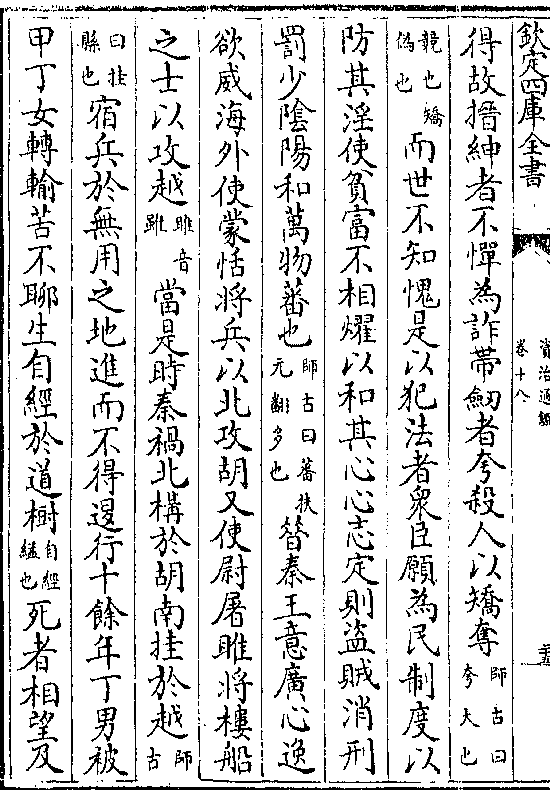 欽定四庫全書
資治通鑑
卷十八
得故搢紳者不憚為詐帶劒者夸殺人以矯奪師古曰夸大也
競也矯偽也而世不知愧是以犯法者衆臣願為民制度以
防其淫使貧富不相燿以和其心心志定則盜賊消刑
罰少陰陽和萬物蕃也師古曰蕃扶元翻多也昔秦王意廣心逸
欲威海外使蒙恬將兵以北攻胡又使尉屠睢將樓船
之士以攻越睢音雖當是時秦禍北構於胡南挂於越師古
曰挂縣也宿兵於無用之地進而不得退行十餘年丁男被
甲丁女轉輸苦不聊生自經於道樹自經縊也死者相望及